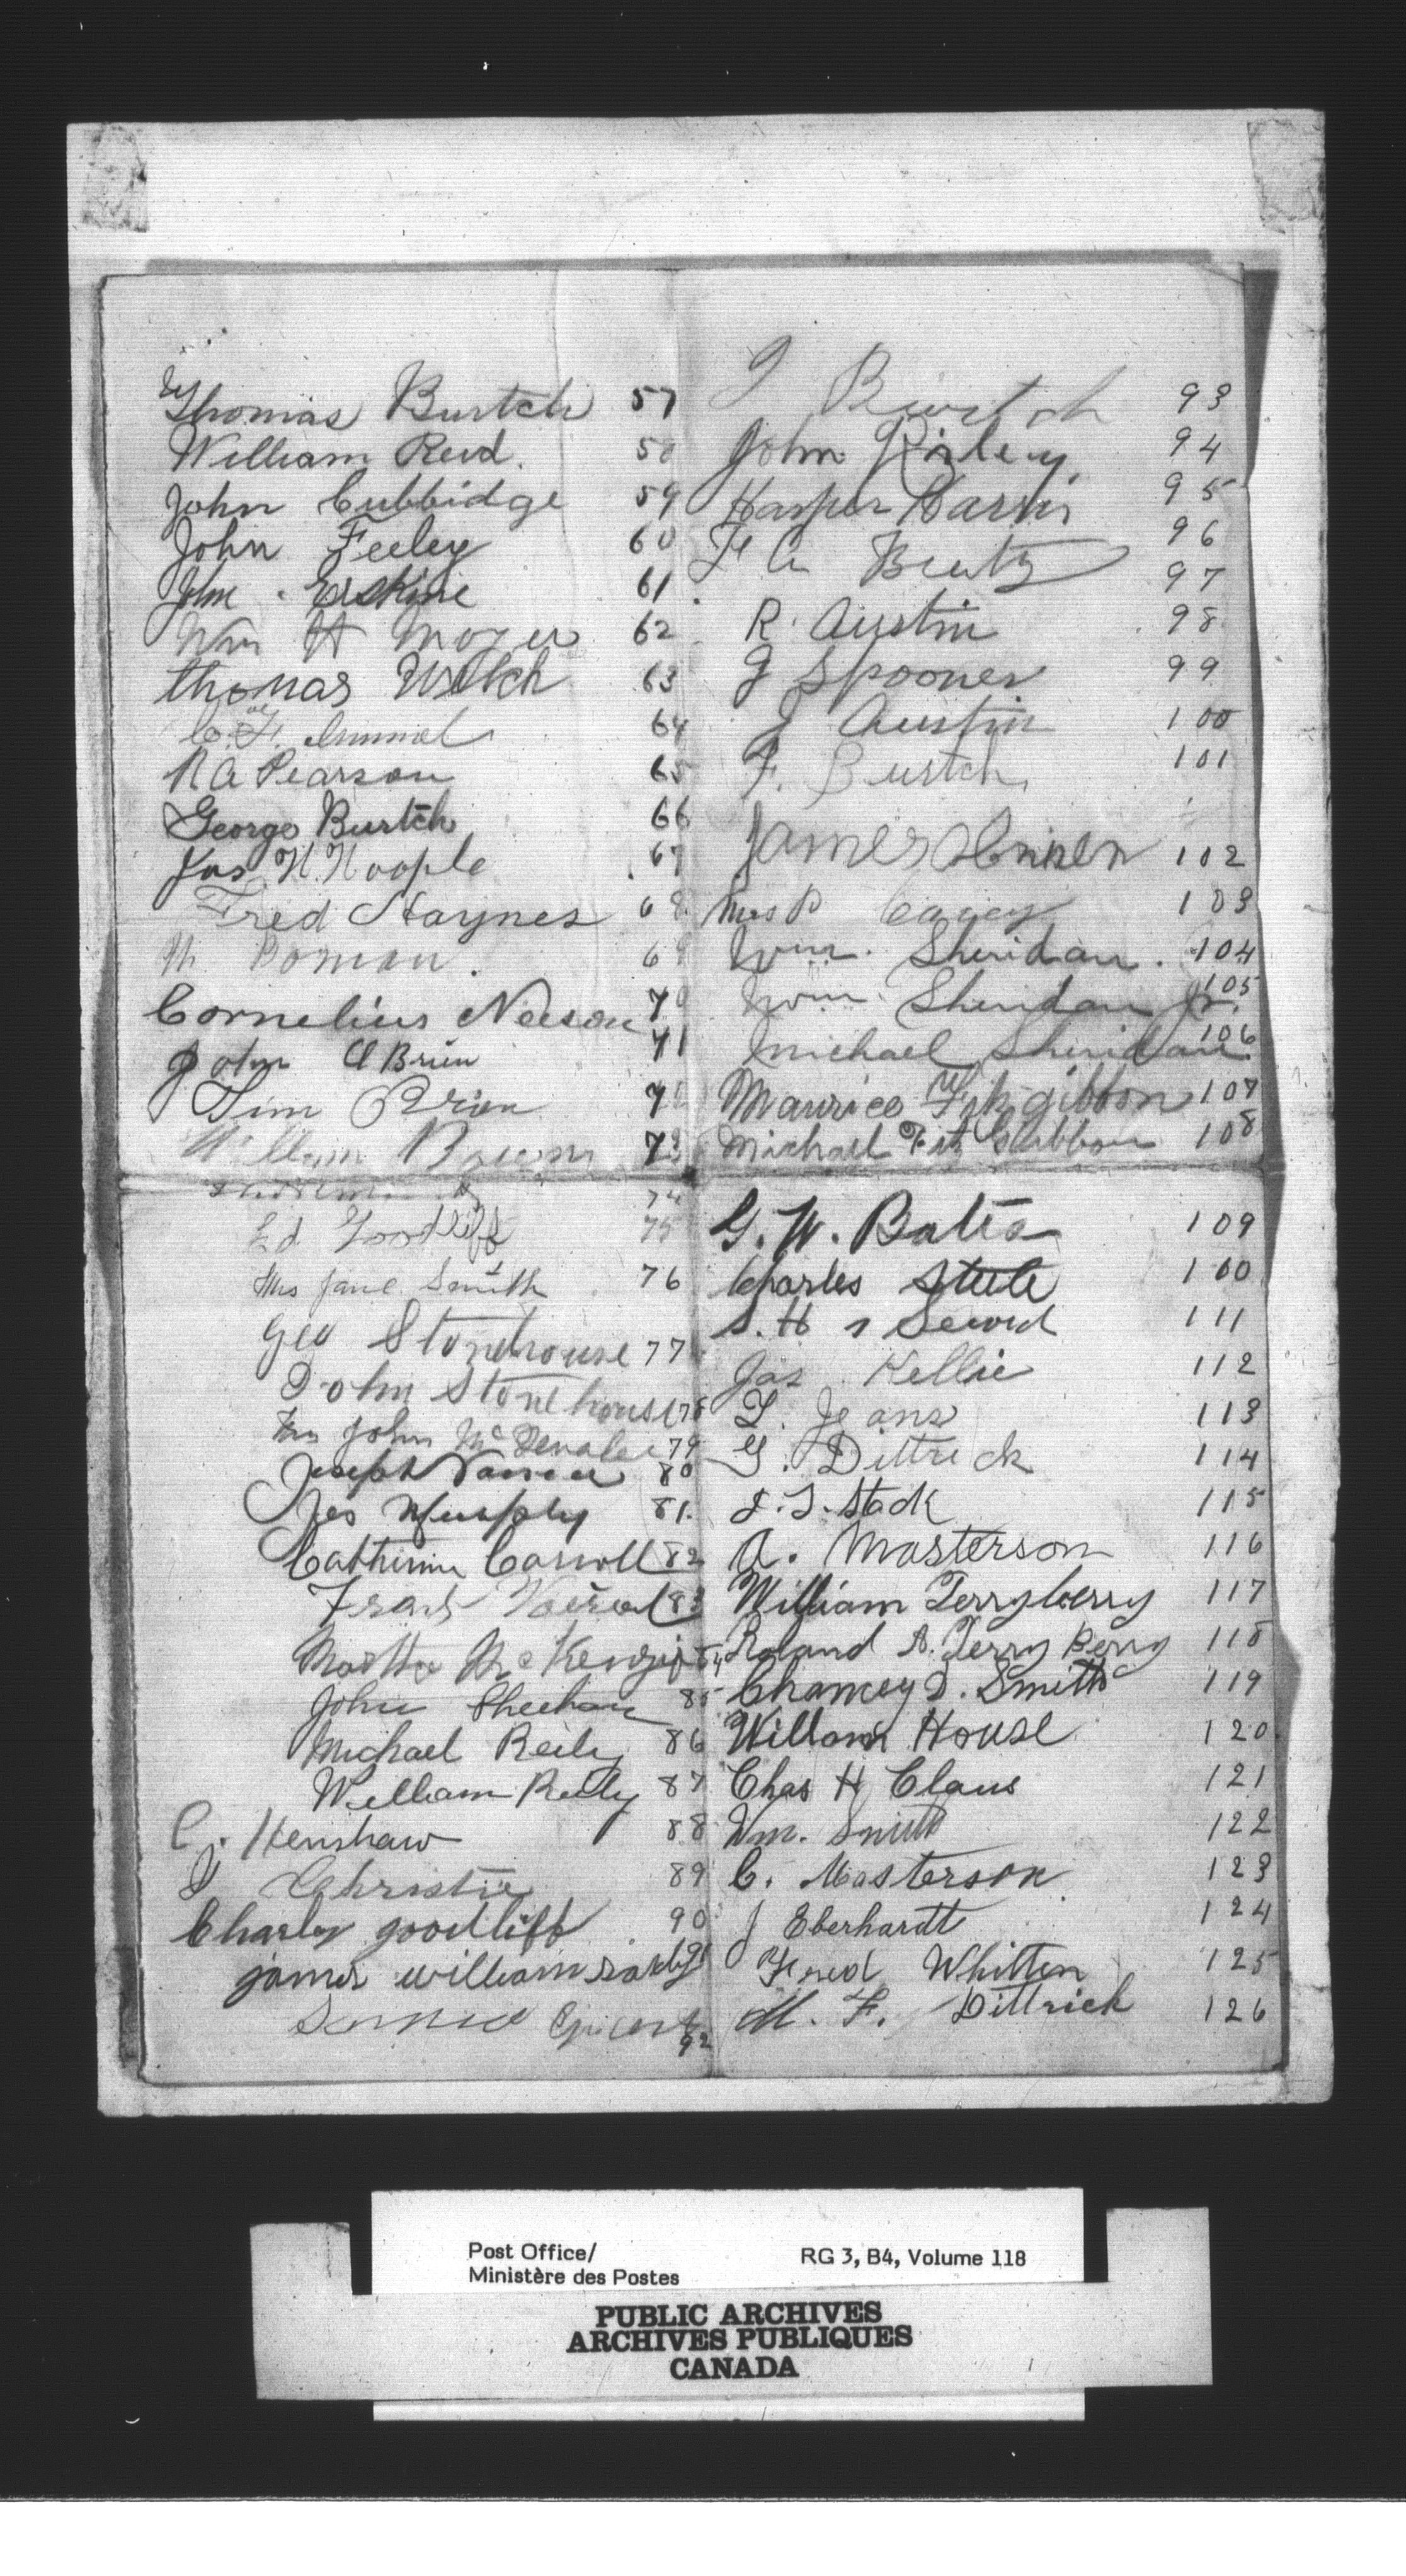 Thomas Burtch 57
William Reid. 58
John Cubbidge 59
John Feeley 60
John Erskine 61
Wm H Moyer 62
thomas Welch 63
64
R A Pearson 65
George Burtch 66
Jas H. Hoople 67
Fred Haynes 68
69
Cornelius Neeson 70
John O Brien 71
Tim Brien 72
William 73
74
Ed Goodliff 75
Mrs Jane Smith 76
Geo Stonehouse 77
John Stonehouse 78
John Mc 79
Joseph 80
Jas Murphy 81.
Catherine Carroll 82
Frank 83
Martha McKenzie 84
John Sheehan 85
Michael Reily 86
William Reily 87
C. Henshaw 88
Christie 89
Charley goodliff 90
james william 91
92
Burtch 93
John 94
Harper Harris 95
96
97
R. Austin 98
J Spooner 99
J Austin 100
F. Burtch 101
James 102
Mrs P Carey 103
Wm. Sheridan. 104
Wm. Sheridan Jr. 105
Michael Sheridan 106
Maurice Fitzgibbon 107
Michael Fitz Gibbon 108
G. W. Bates 109
Charles Steele 100
S. H Secord 111
Jas Kellie 112
113
G. Dittrick 114
Stack 115
A. Masterson 116
William Terryberry 117
Roland A. Terry Berry 118
Chancey D. Smith 119
William House 120
Chas H Claus 121
Wm. Smith 122
C. Masterson 123
J Eberhardt 124
Fred Whitten 125
M. F. Dittrick 126
Post Office/ RG 3, B4, Volume 118
Ministère des Postes
PUBLIC ARCHIVES
ARCHIVES PUBLIQUES
CANADA